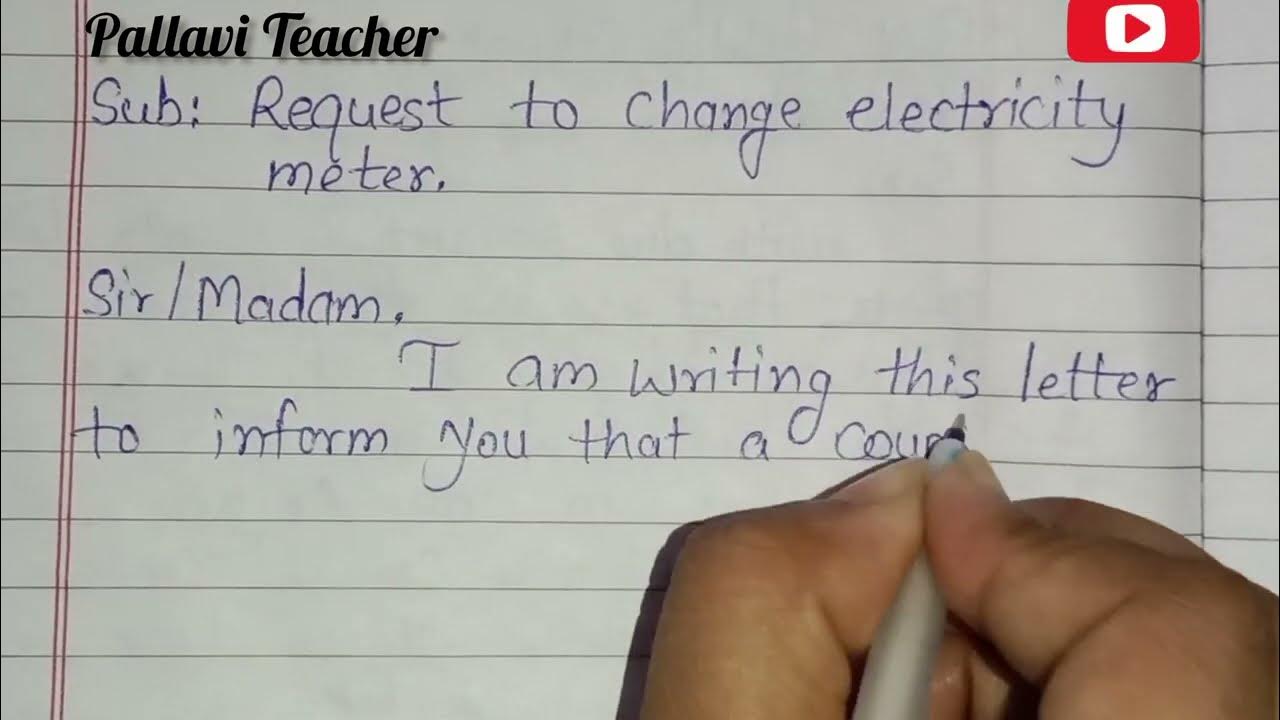 Pallavi Teacher
Sub: Request to change electricity
meter.
Sir/Madam,
I am writing this letter
to inform you that a